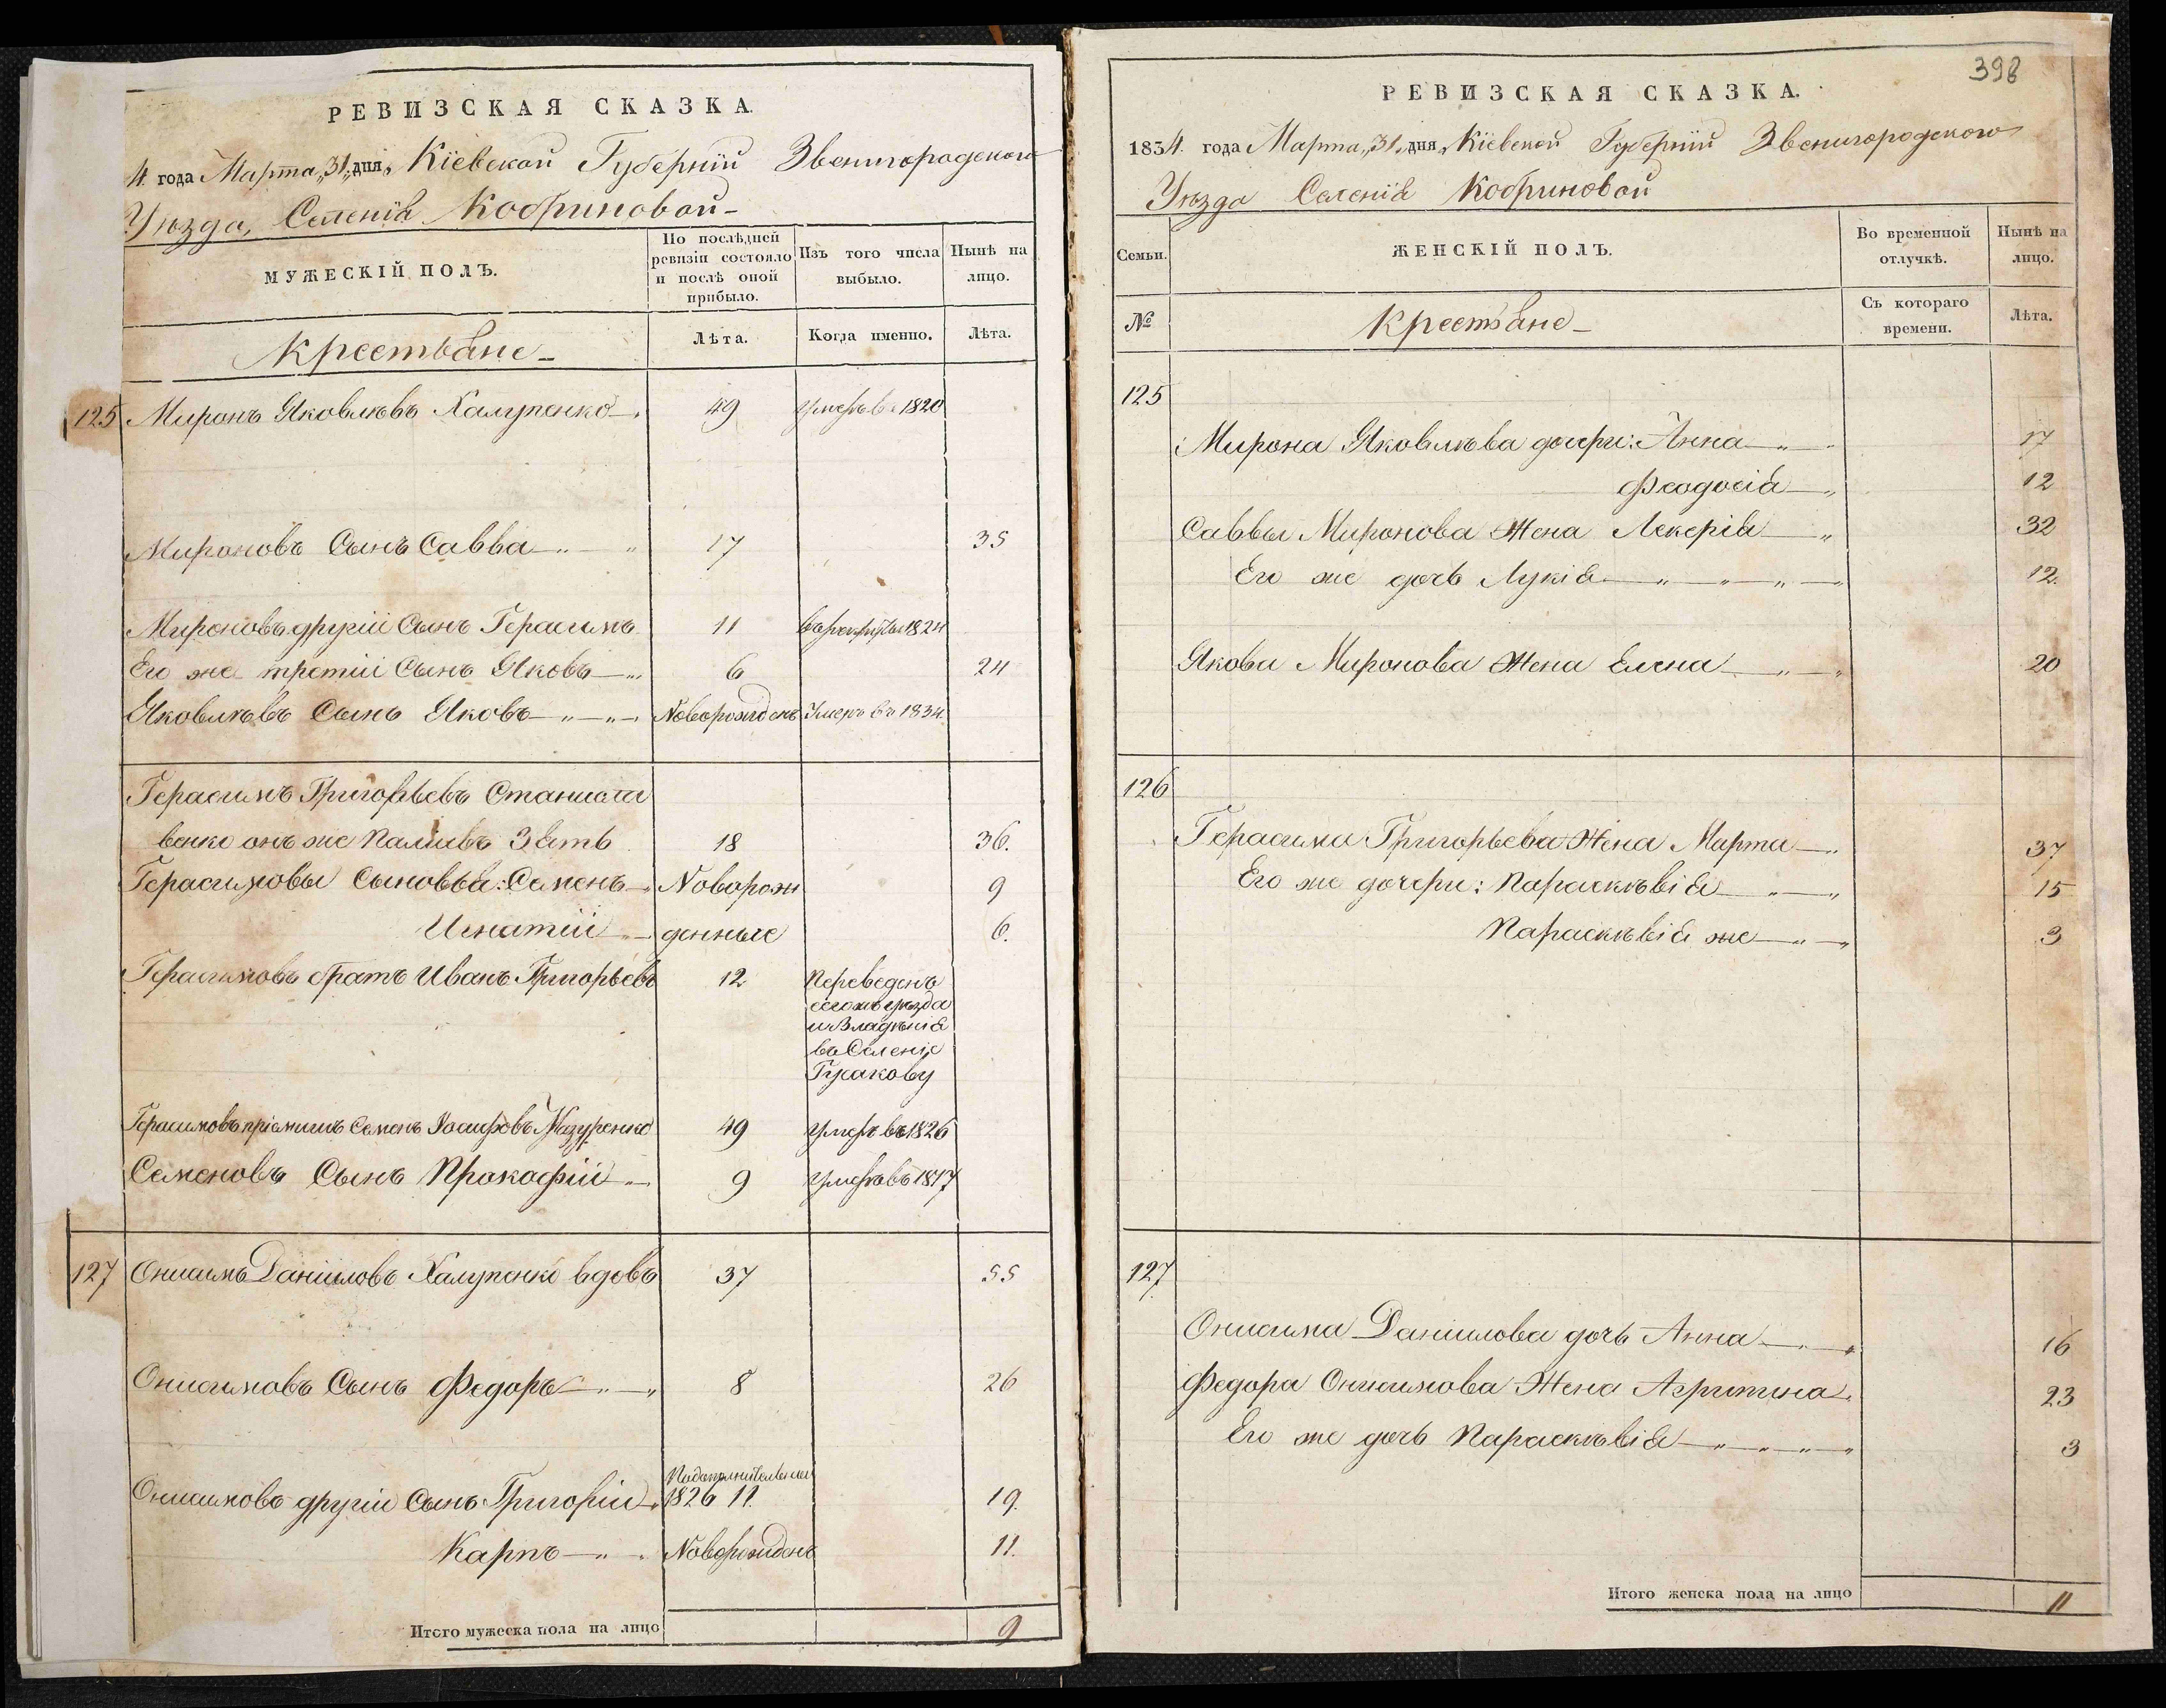 РЕВИЗСКАЯ СКАЗКА.
4. года Марта „31„ дня, Кіевской Губерніи Звенигородского
Уѣзда, Селенія Кобриновой
МУЖЕСКІЙ ПОЛЪ.
По послѣдней ревизіи состояло и послѣ оной прибыло.
Изъ того числа выбыло.
Нынѣ на лицо.
Крестьяне
Лѣта.
Когда именно.
Лѣта.
125 Миронъ Яковлѣвъ Халупенко 49 умеръ въ 1820
Мироновъ Сынъ Савва 17 35
Мироновъ другій Сынъ Герасимъ 11 в рекруты 1824
Его же третій Сынъ Яковъ 6 24
Яковлѣвъ Сынъ Яковъ Новорожденъ Умеръ въ 1834
Герасимъ Григорьевъ Станисла
венко онъ же Паліивъ Зять 18 36.
Герасимовы Сыновья: Семенъ Новорож 9
Игнатій денные 6.
Герасимовъ братъ Иванъ Григорьевъ 12 Переведенъ
сего жъ уѣзда
и Владѣнія
въ Селеніе
Гусакову
Герасимовъ пріемышъ Семенъ Іосифовъ Мазуренко 49 умеръ въ 1826
Семеновъ Сынъ Прокофій 9 умеръ въ 1817
127 Онисимъ Даніиловъ Халупенко вдовъ 37 55
Онисимовъ Сынъ Федоръ 8 26
Онисимовъ другій Сынъ Григорій По дополнительной 1826 11. 19.
Карпъ Новорожденъ 11.
Итого мужеска пола на лицо 9
398
РЕВИЗСКАЯ СКАЗКА.
1834. года Марта „31„ дня, Кіевской Губерніи Звенигородского
Уѣзда Селенія Кобриновой
Семьи.
ЖЕНСКІЙ ПОЛЪ.
Во временной отлучкѣ.
Нынѣ на лицо.
№
Крестьяне
Съ котораго времени.
Лѣта.
125
Мирона Яковлѣва дочери: Анна 17
Феодосія 12
Саввы Миронова Жена Лекерія 32
Его же дочь Лукія 12.
Якова Миронова Жена Елена 20
126
Герасима Григорьева Жена Марта 37
Его же дочери: Параскѣвія 15
Параскѣвія же 3
127
Онисима Даніилова дочь Анна 16
Федора Онисимова Жена Агрипина 23
Его же дочь Параскѣвія 3
Итого женска пола на лицо 11